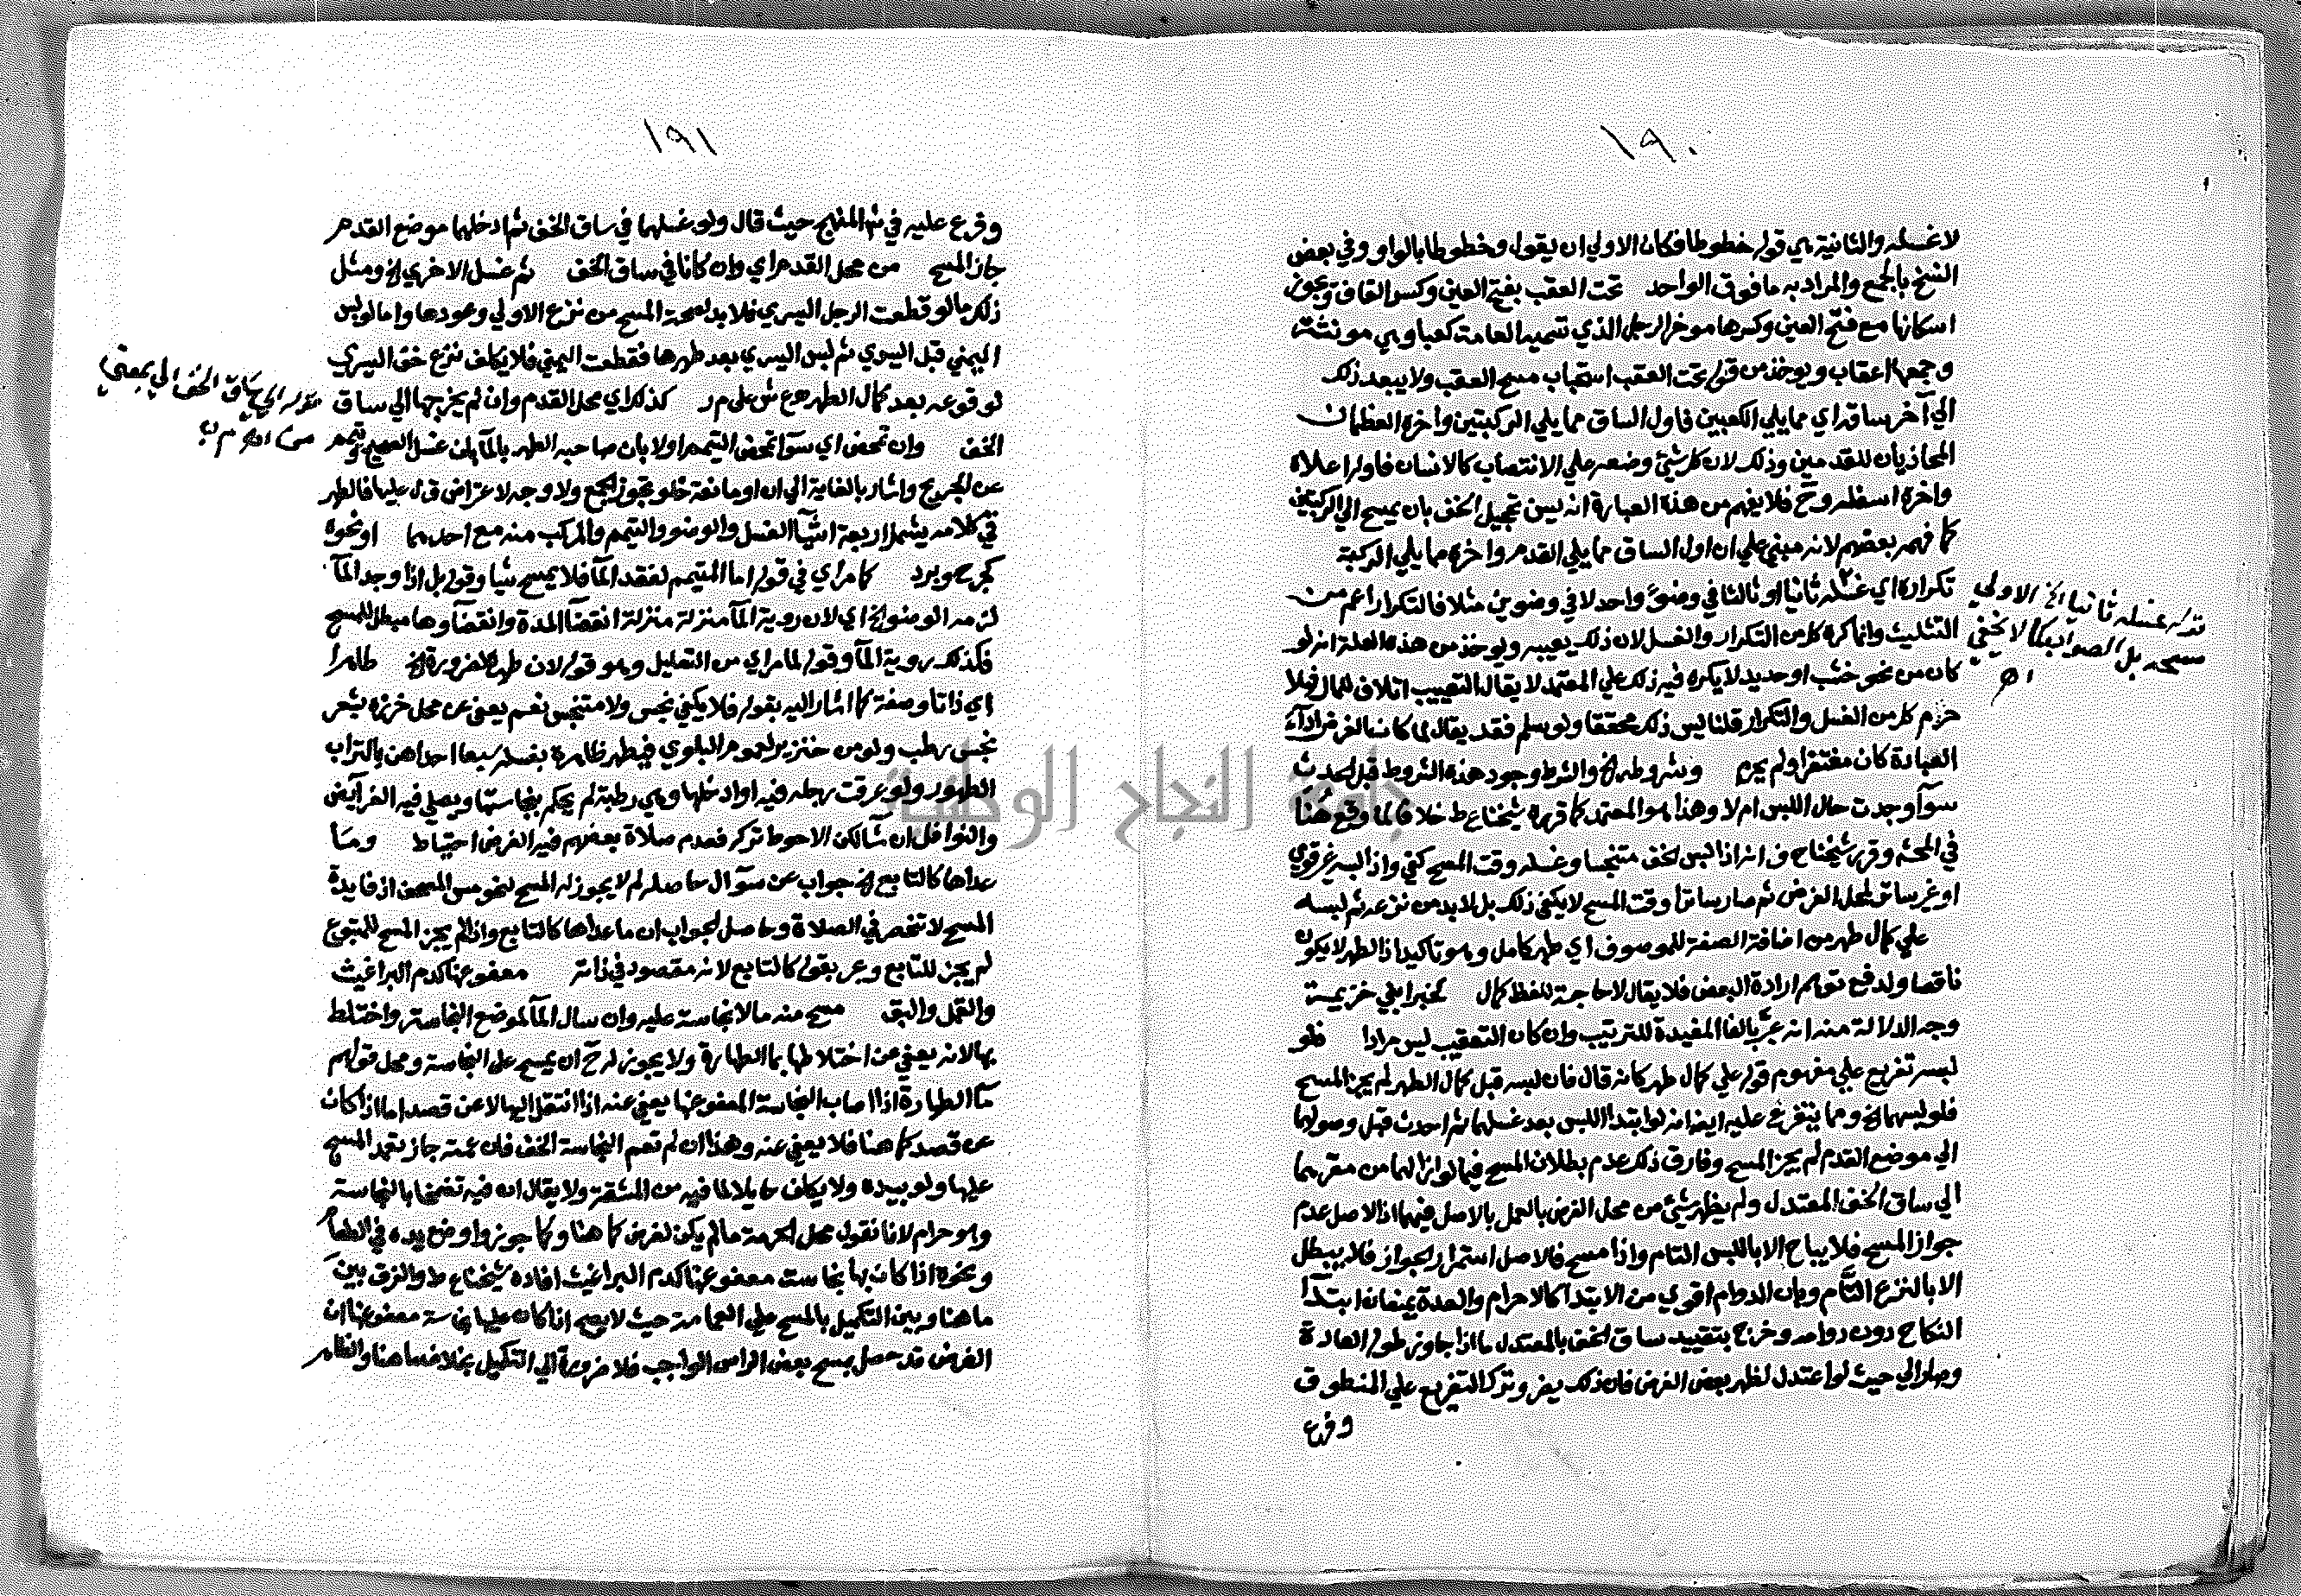 ١٩٠
لا غسله والثانية هي قوله خطوطا فكان الاولي ان يقول وخطوطا بالواو وفي بعض
النسخ بالجمع والمراد به ما فوق الواحد تحت العقب بفتح العين وكسر القاف ويجوز
اسكانها مع فتح العين وكسرها موخر الرجل الذي تسميه العامة كعبا وهي مونثة
وجمعها اعقاب ويوخذ من قوله تحت العقب استحباب مسح العقب ولا يبعد ذلك
الي آخر ساقه اي مما يلي الكعبين فاول الساق مما يلي الركبتين واخره العظمان
المحاذيان للقدمين وذلك لان كل شيئ وضعه علي الانتصاب كالانسان فاوله اعلاه
واخره اسفله وح فلا يفهم من هذه العبارة انه يسن تحجيل الخف بان يمسح الي الركبتين
كما فهمه بعضهم لانه مبني علي ان اول الساق مما يلي القدم واخره مما يلي الركبة
تكراره اي غسله ثانيا او ثالثا في وضوء واحد لا في وضوين مثلا فالتكرار اعم من
التثليث وانما كره كل من التكرار والغسل لان ذلك يعيبه ويوخذ من هذه العلة انه لو
كان من نحو خشب او حديد لا يكره فيه ذلك علي المعتمد لا يقال التعييب اتلاف للمال فهلا
حرم كل من الغسل والتكرار قلنا ليس ذلك محققا ولو سلم فقد يقال لما كان الغرض اداء
العبادة كان مغتفرا ولم يحرم وشروطه الخ والشرط وجود هذه الشروط قبل الحدث
سوآ وجدت حال اللبس ام لا وهذا هو المعتمد كما قرره شيخنا ع ط خلافا لما وقع هنا
في المحشي وقرر شيخنا ح ف انه اذا لبس الخف متنجسا وغسله وقت المسح كفي واذا لبسه غير قوي
او غير ساتر لمحل الفرض ثم صار ساترا وقت المسح لا يكفي ذلك بل لا بد من نزعه ثم لبسه
علي كمال طهر من اضافة الصفة للموصوف اي طهر كامل وهو تاكيد اذ الطهر لا يكون
ناقصا ولدفع توهم ارادة البعض فلا يقال لا حاجة للفظ كمال لخبر ابني خزيمة
وجه الدلالة منه انه عبر بالفا المفيدة للترتيب وان كان التعقيب ليس مرادا فلو
لبسه تفريع علي مفهوم قوله علي كمال طهر كانه قال فان لبسه قبل كمال الطهر لم يجز المسح
فلو لبسهما الخ ومما يتفرع عليه ايضا انه لو ابتدا اللبس بعد غسلهما ثم احدث قبل وصولهما
الي موضع القدم لم يجز المسح وفارق ذلك عدم بطلان المسح فيما لو ازالهما من مقرهما
الي ساق الخف المعتدل ولم يظهر شيئ من محل الفرض بالعمل بالاصل فيهما اذ الاصل عدم
جواز المسح فلا يباح الا باللبس التام واذا مسح فالاصل استمرار الجواز فلا يبطل
الا بالنزع التام وبان الدوام اقوي من الابتدا كالاحرام والعدة يمنعان ابتدآ
النكاح دون دوامه وخرج بتقييد ساق الخف بالمعتدل ما اذا جاوز طوله العادة
وصار الي حيث لو اعتدل لظهر بعض الفرض فان ذلك يضر وترك التفريع علي المنطوق
وفرع
قوله غسله ثانيا الخ الاولي
مسحه بل الصواب كما لا يخفي
اه
١٩١
وفرع عليه في شرح المنهج حيث قال ولو غسلهما في ساق الخف ثم ادخلهما موضع القدم
جاز المسح من محل القدم اي وان كانا في ساق الخف ثم غسل الاخري الخ ومثل
ذلك ما لو قطعت الرجل اليسري فلا بد لصحة المسح من نزع الاولي وعودها واما لو لبس
اليمني قبل اليسري ثم لبس اليسري بعد طهرها فقطعت اليمني فلا يكلف نزع خف اليسري
لوقوعه بعد كمال الطهر ع ش علي م ر كذلك اي محل القدم وان لم يخرجها الي ساق
الخف وان تمحض اي سوآ تمحض التيمم اولا بان صاحبه الطهر بالمآ بان غسل الصحيح وتيمم
عن الجريح واشار بالغاية الي ان او مانعة خلو تجوز الجمع ولا وجه لاعتراض ق ل عليها فالطهر
في كلامه يشمل اربعة اشيآ الغسل والوضو والتيمم والمركب منه مع احدهما او نحوه
كجرح وبرد كما مر اي في قوله اما المتيمم لفقد المآ فلا يمسح شيا وقوله بل اذا وجد المآ
لزمه الوضو الخ اي لان روية المآ منزلة منزلة انقضآ المدة وانقضآوها مبطل للمسح
فكذلك روية المآ وقوله لما مر اي من التعليل وهو قوله لان طهره لضرورة الخ طاهرا
اي ذاتا وصفة كما اشار اليه بقوله فلا يكفي نجس ولا متنجس نعم يعفي عن محل خرزه بشعر
نجس رطب ولو من خنزير لعموم البلوي فيطهر ظاهره بغسله سبعا احداهن بالتراب
الطهور ولو عرقت رجله فيه او ادخلها وهي رطبة لم يحكم بنجاستها ويصلي فيه الفرآيض
والنوافل ان شآ لكن الاحوط تركه فعدم صلاة بعضهم فيه الفرض احتياط وما
عداها كالتابع الخ جواب عن سوآل حاصله لم لا يجوز له المسح لنحو مس المصحف اذ فايدة
المسح لا تنحصر في الصلاة وحاصل الجواب ان ما عداها كالتابع واذا لم يجز المسح للمتبوع
لم يجز للتابع وعبر بقوله كالتابع لانه مقصود في ذاته معفو عنها كدم البراغيث
والقمل والبق مسح منه ما لا نجاسة عليه وان سال المآ لموضع النجاسة واختلط
بها لانه يعفي عن اختلاطها بما الطهارة ولا يجوز له ح ان يمسح علي النجاسة ومحل قولهم
مآ الطهارة اذا اصاب النجاسة المعفو عنها يعفي عنه اذا انتقل اليها لا عن قصد اما اذا كان
عن قصد كما هنا فلا يعفي عنه وهذا ان لم تعم النجاسة الخف فان عمته جاز تعمد المسح
عليها ولو بيده ولا يكلف حايلا لما فيه من المشقة ولا يقال ان فيه تضمخا بالنجاسة
وهو حرام لانا نقول محل الحرمة ما لم يكن لغرض كما هنا وكما جوزوا وضع يده في الطعام
ونحوه اذا كان بها نجاسة معفو عنها كدم البراغيث افاده شيخنا ع ط والفرق بين
ما هنا وبين التكميل بالمسح علي العمامة حيث لا يصح اذا كان عليها نجاسة معفو عنها ان
الفرض قد حصل بمسح بعض الراس الواجب فلا ضرورة الي التكميل بخلاف ما هنا والظاهر
قوله الي ساق الخف الي بمعني
من اه م ب
جامعة النجاح الوطنية